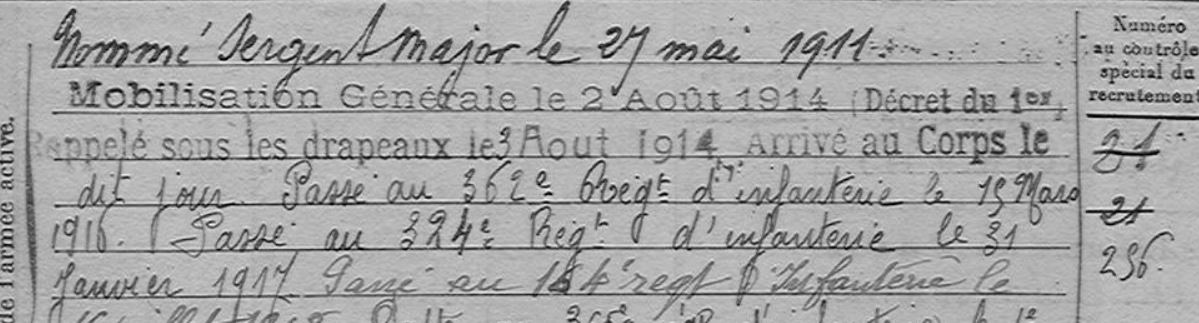 Nommé Sergent Major le 27 mai 1911.
Mobilisation Générale le 2 Août 1914 (Décret du 1er)
Rappelé sous les drapeaux le 3 Aout 1914 Arrivé au Corps le
dit jour. Passé au 362e Régt d'infanterie le 15 Mars
1916. Passé au 324e Régt d'infanterie le 31
Janvier 1917 Passé au regt d'Infanterie le
Numéro
au contrôle
spécial du
recrutement
21
236.
de l'armée active.